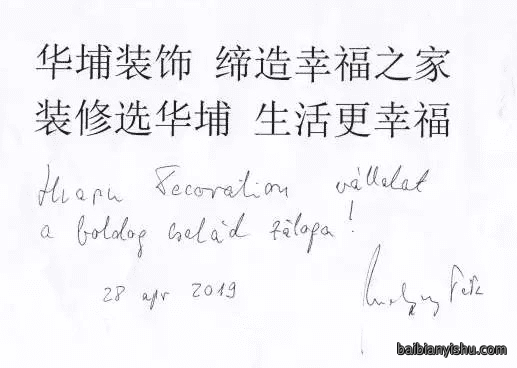 华埔装饰 缔造幸福之家
装修选华埔 生活更幸福
Huapu Decoration vállalat
a boldog család záloga!
28 apr 2019
baibianyishu.com